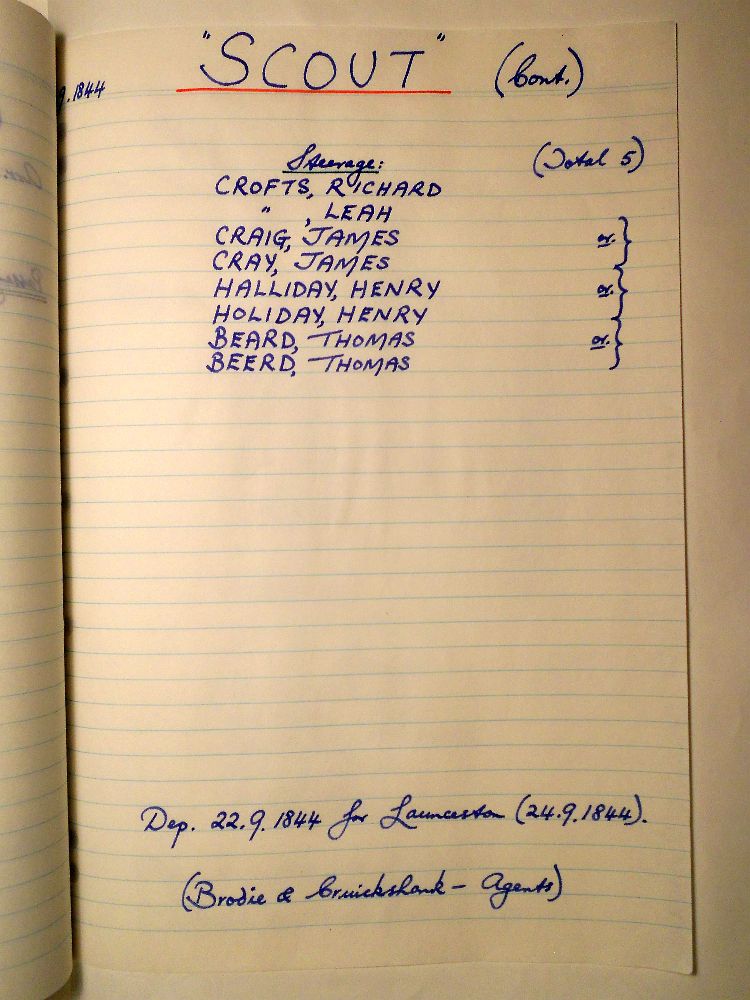 "SCOUT" (Cont.)
9.1844
Steerage: (Total 5)
CROFTS, RICHARD
" , LEAH
CRAIG, JAMES or.
CRAY, JAMES
HALLIDAY, HENRY or.
HOLIDAY, HENRY
BEARD, THOMAS or.
BEERD, THOMAS
Dep. 22.9.1844 for Launceston (24.9.1844).
(Brodie & Cruickshank - Agents)